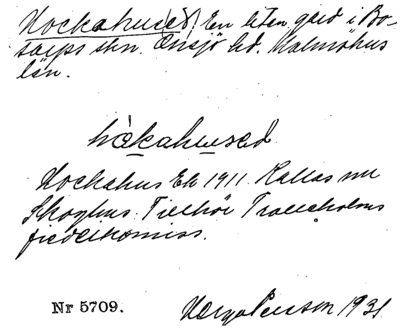 Hockahus(et) En liten gård i Bo-
sarps skn. Onsjö hd. Malmöhus
län.
håkahused
Hockahus Ek 1911. Kallas nu
Skoghus. Tillhör Trolleholms
fideikomiss.
Nr 5709.
Helga Persson 1931